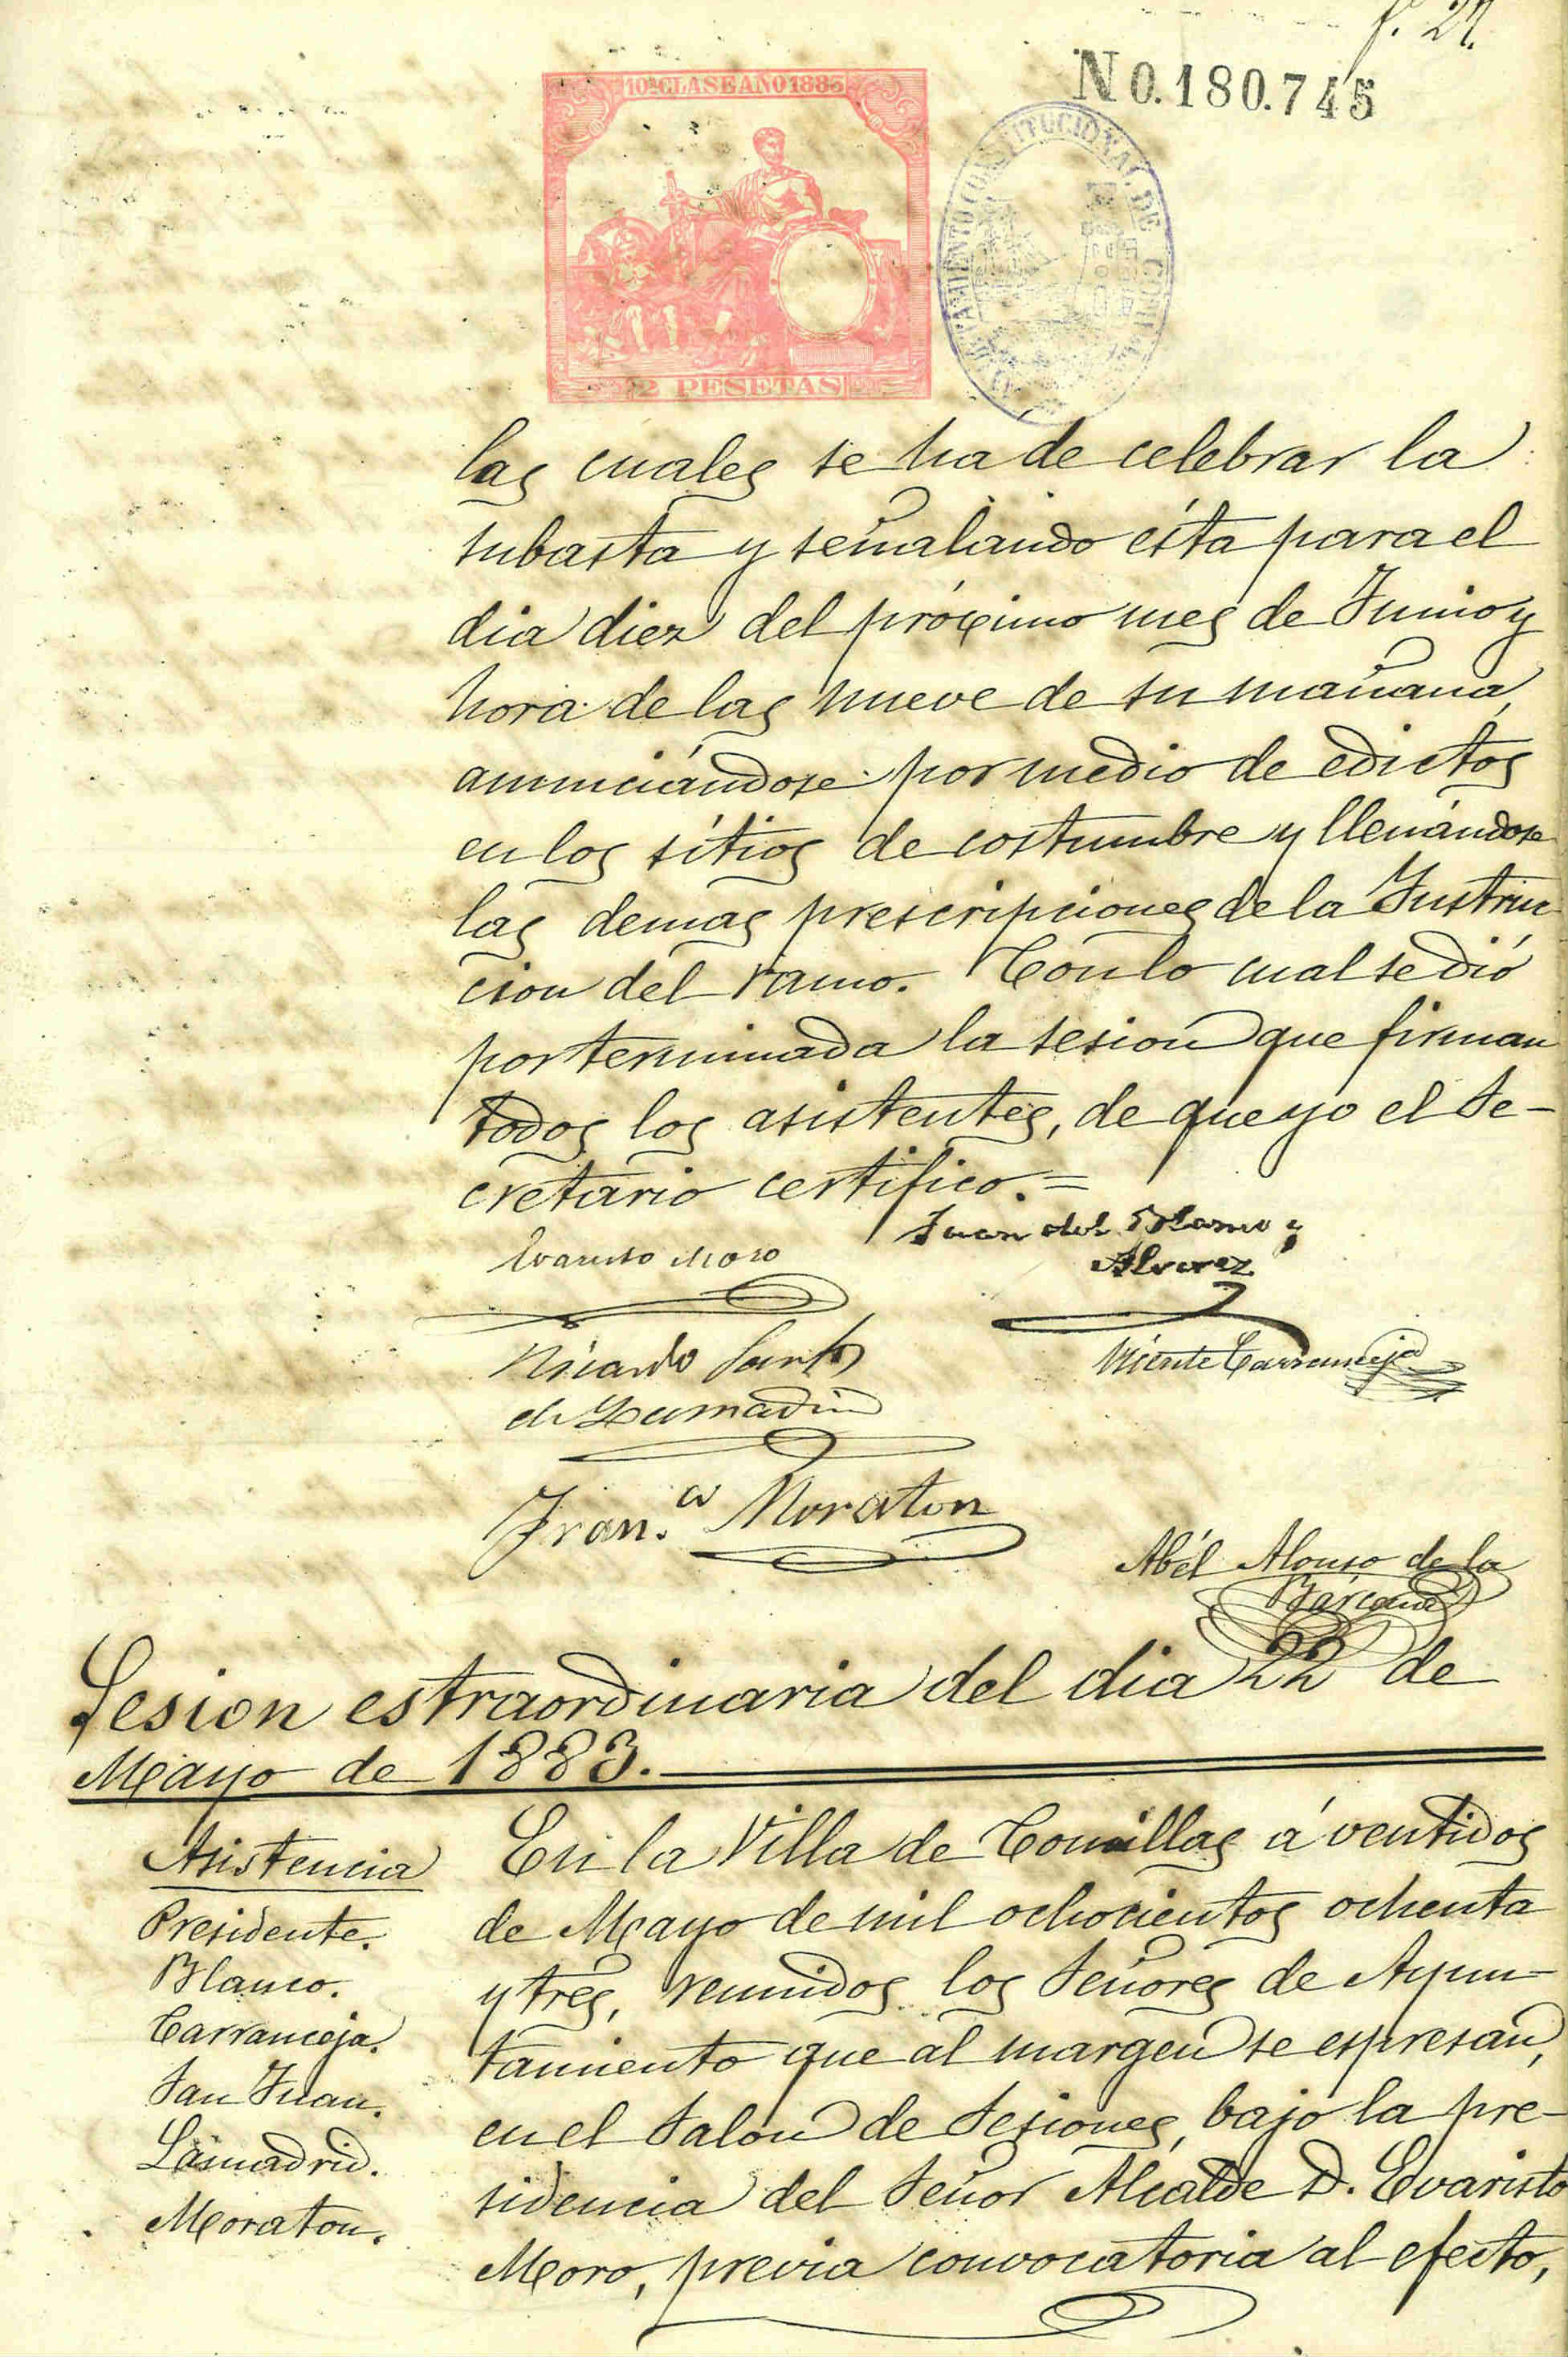 f. 27.
N 0.180.745
10ª CLASE AÑO 1883
AYUNTAMIENTO CONSTITUCIONAL DE COMILLAS
2 PESETAS
las cuales se ha de celebrar la
subasta y señalando ésta para el
dia diez del próximo mes de Junio y
hora de las nueve de su mañana,
anunciándose por medio de edictos
en los sítios de costumbre y llenándose
las demas prescripciones de la Instruc
cion del ramo. Con lo cual se dió
por terminada la sesion que firman
todos los asistentes, de que yo el Se-
cretario certifico.=
Evaristo Moro
Juan del Blanco y
Alvarez
Ricardo Sanchz
de Lamadrid
Vicente Carranceja
Fran.co Moraton
Abél Alonso de la
Bárcena
Sesion estraordinaria del dia 22 de
Mayo de 1883.
Asistencia
Presidente.
Blanco.
Carranceja.
San Juan.
Lamadrid.
Moraton.
En la Villa de Comillas á ventidos
de Mayo de mil ochocientos ochenta
y tres, reunidos los Señores de Ayun-
tamiento que al margen se espresan,
en el Salon de Sesiones, bajo la pre-
sidencia del Señor Alcalde D. Evaristo
Moro, previa convocatoria al efecto,